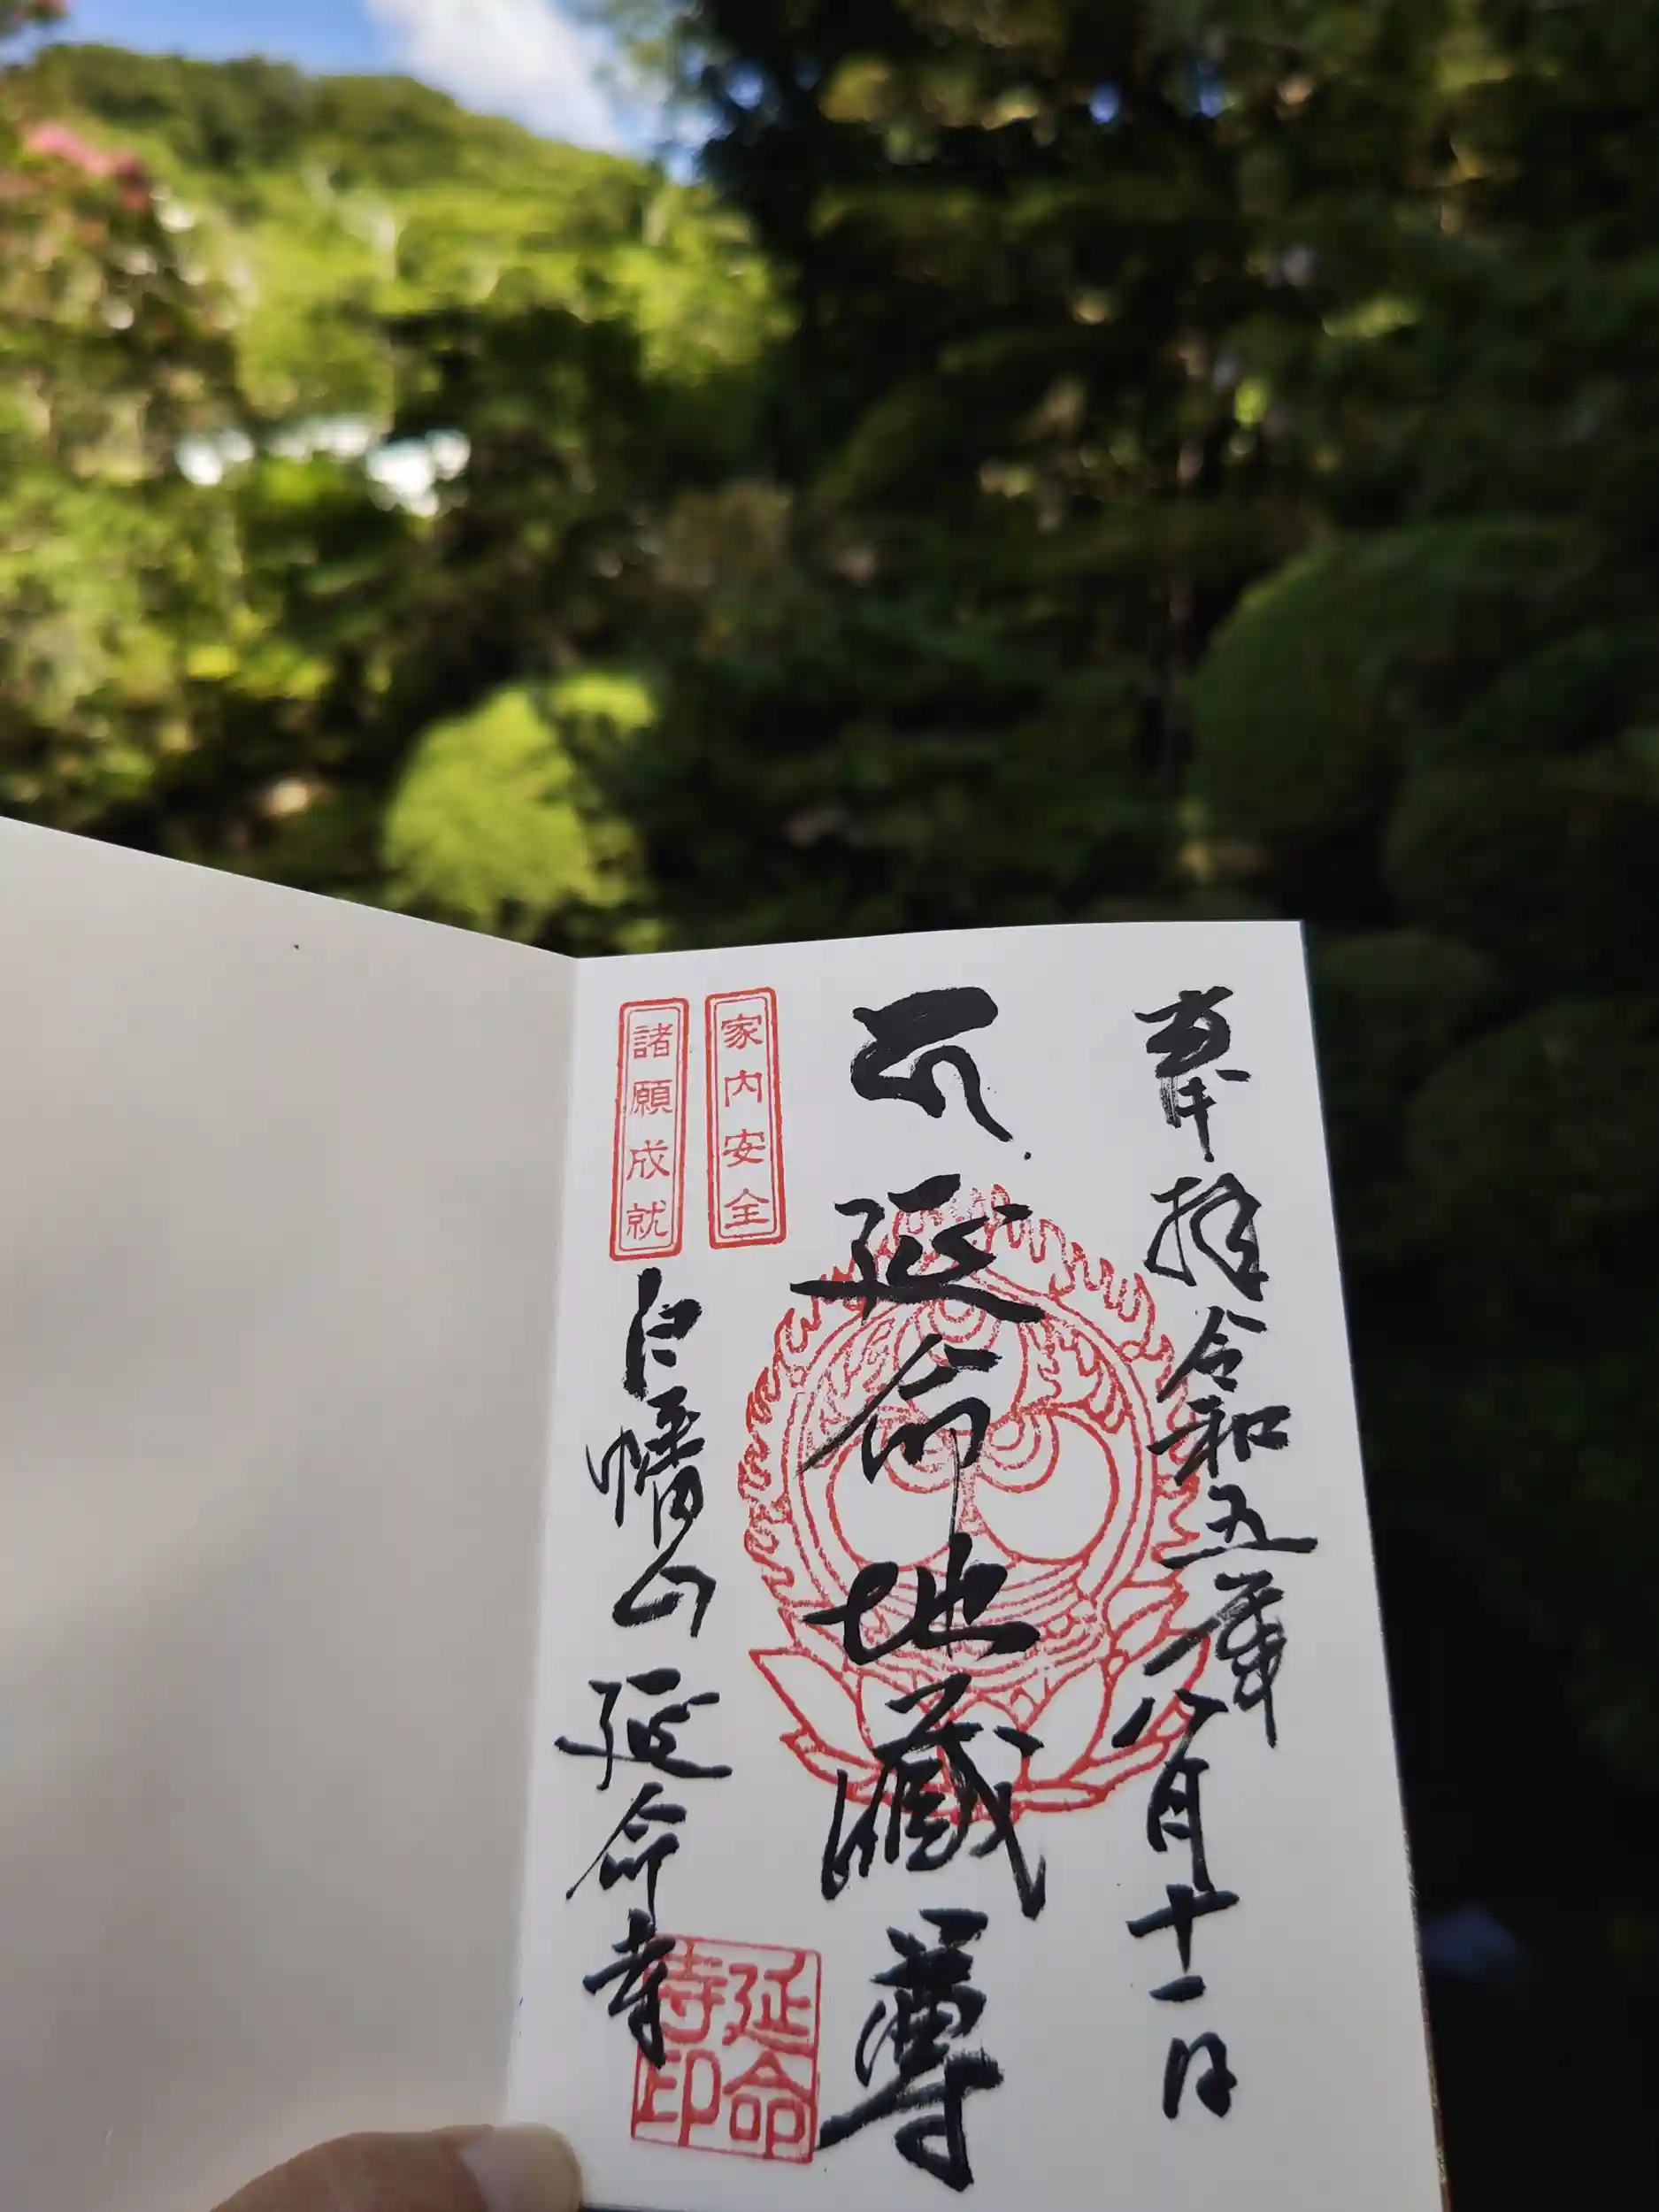 奉拝 令和五年八月十一日
延命地蔵尊
家内安全
諸願成就
白幡山 延命寺
延命寺印